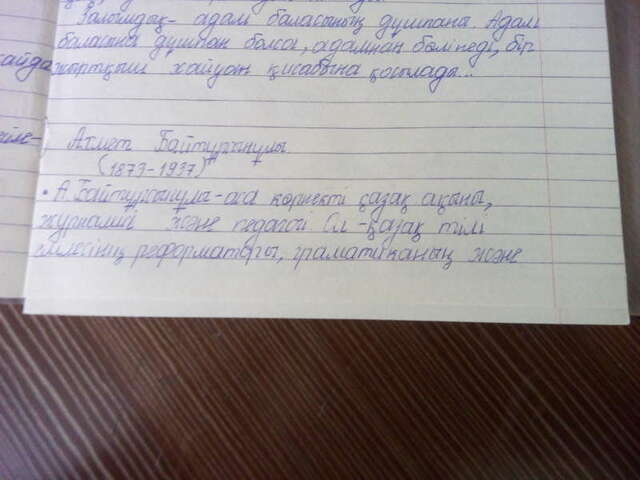 Залымдық- адам баласының дұшпаны. Адам
баласына дұшпан болса, адамнан бөлінеді, бір
жыртқыш хайуан қисабына қосылады...
Ахмет Байтұрынұлы
(1873-1937)
• А Байтұрсынұлы-аса көрнекті қазақ ақыны,
журналші және педагогі Ол -қазақ тілі
емлесінің реформаторы, граматиканың және